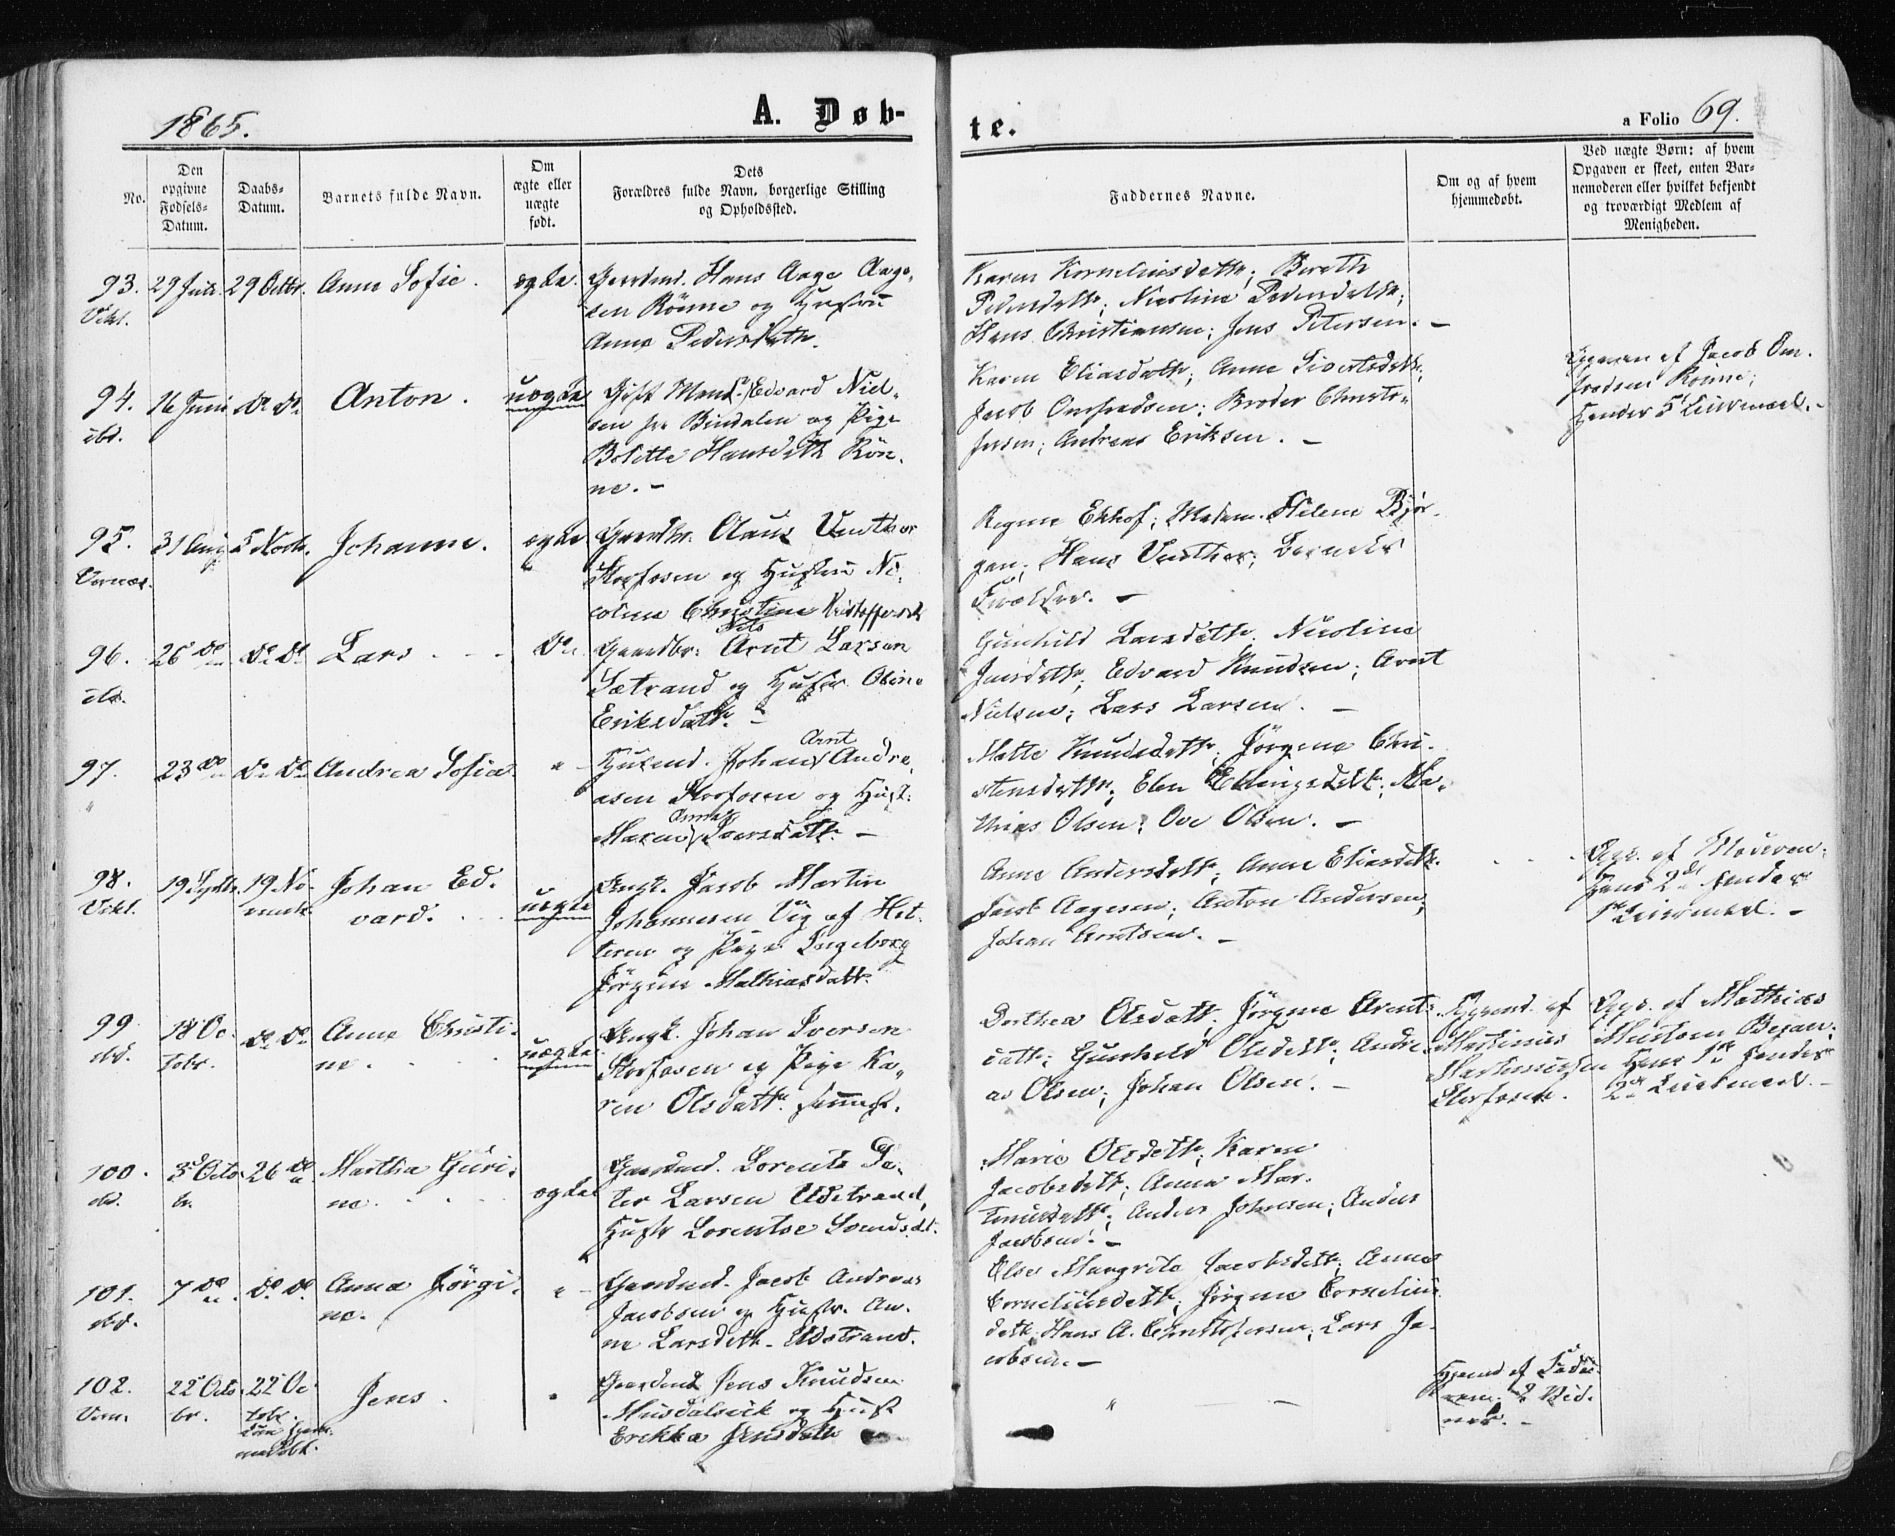 1865.
A. Døb-
te.
a Folio 69.
No.
Den
opgivne
Fødsels-
Datum.
Daabs-
Datum.
Barnets fulde Navn.
Om
ægte eller
uægte
født.
Dets
Forældres fulde Navn, borgerlige Stilling
og Opholdssted.
Faddernes Navne.
Om og af hvem
hjemmedøbt.
Ved uægte Børn: af hvem
Opgaven er skeet, enten Bar-
nemoderen eller hvilket bekjendt
og troværdigt Medlem af
Menigheden.
93. 29 Juli. 29 Octbr. Anne Sofie. ægte. Hans Aage Aage-
sen Rönne og Hustru
Anne Pedersdatr.
Karen Kornelinsdattr; Bereth
Pedersdattr; Nicoline Pedersdattr;
Hans Christiansen; Jens Petersen. —
94. 16 Juni do do Anton. uægte Gift Mand Edvard Niel-
sen fra Bindalen og Pige
Bolette Hansdattr Rön-
ne. —
ibd.
Karen Eliasdattr; Anne Sivertsdattr;
Jacob Omfredsen; Broder Christo-
fersen; Andreas Eriksen. —
Opgaven af Jacob Om-
fredsen Rönne;
Hendes 5t Leiermaal. –
95. 31 Aug 5 Novbr. Johanne. ægte Gaardbr. Claus Venther
Storfosen og Hustru Ni-
coline Christine Kristoffersdt
Hans Venther;
Forældre. —
96. 26 do do do Lars do Gaardbr: Nils Arnt Larsen
Sætrand og Hustr. Oline
Eriksdattr. –
Gunhild Larsdattr. Nicoline
Jensdattr; Edvard Knudsen; Arnt
Nielsen; Lars Larsen. —
97. 23 do do do Andrea Sofia. " Johan Arnt Andre-
asen Storfosen og Hust:
Maren Anna Iversdattr. —
"
Mette Knudsdattr; Jörgine Chri-
stensdattr; Elen Ellingsdatt; Ma-
thias Olsen; Ove Olsen. —
98. 19 Septbr. 19 No-
vembr. Johan Ed-
vard. uægte Ungk. Jacob Martin
Johannesen Vig af Hit-
teren og Pige Ingeborg
Jörgine Mathiasdattr
Anne Andersdattr; Anne Eliasdattr.
Jacob Aagesen; Anton Andersen;
Johan Arntsen. —
Opg. af Moderen.
Hans 2det Hendes
1ste Leiermaal. –
99 18 Oc-
tobr. do do Anne Christi-
ne. uægte Ungk. Johan Iversen
Storfosen og Pige Ka-
ren Olsdattr
Dorthea Olsdatt; Jörgine Arnts-
datt; Gunhild Olsdattr; Andre-
as Olsen; Johan Olsen. —
Hjemd. af
Martinus
Martinusen
Storfosen.
Opg. af Mathias
Hans 1ste Hendes
2det Leiermaal. –
100. 3d Octo-
br. 26 do Martha Guri-
ne. ægte Gaardmd. Lorents Pe-
ter Larsen Udstrand,
Hustr Lorentse
Marie Olsdattr; Karen
Jacobsdatt; Anne Mar-
tinusdattr; Anders Johnsen; Anders
Jacobsen. —
101. 7 do do do Anna Jörgi-
ne. " Gaardmd. Jacob Andreas
Jacobsen og Hustr. An-
ne Larsdattr. Udstrand.
Else Margrete Jacobsdatt; Anne
Corneliusdattr; Jörgine Cornelius-
datt; Hans A. Christofersen; Lars Ja-
cobsen. —
102. 22 Octo-
br. 22 Oc-
tobr. Jens " Gaardmd Jens Knudsen
og Hust
Erekka Jensdattr
" —
Hjemd af Fade-
ren; 2 Vid-
ner. –